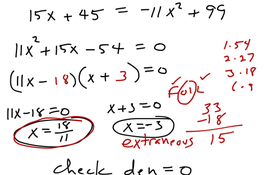 15x + 45 = -11x² + 99
11x² + 15x - 54 = 0
(11x - 18)(x + 3) = 0
11x - 18 = 0
x = 18/11
x + 3 = 0
x = -3
extraneous
1.54
2.27
3.18
FOIL
33
-18
15
check den = 0